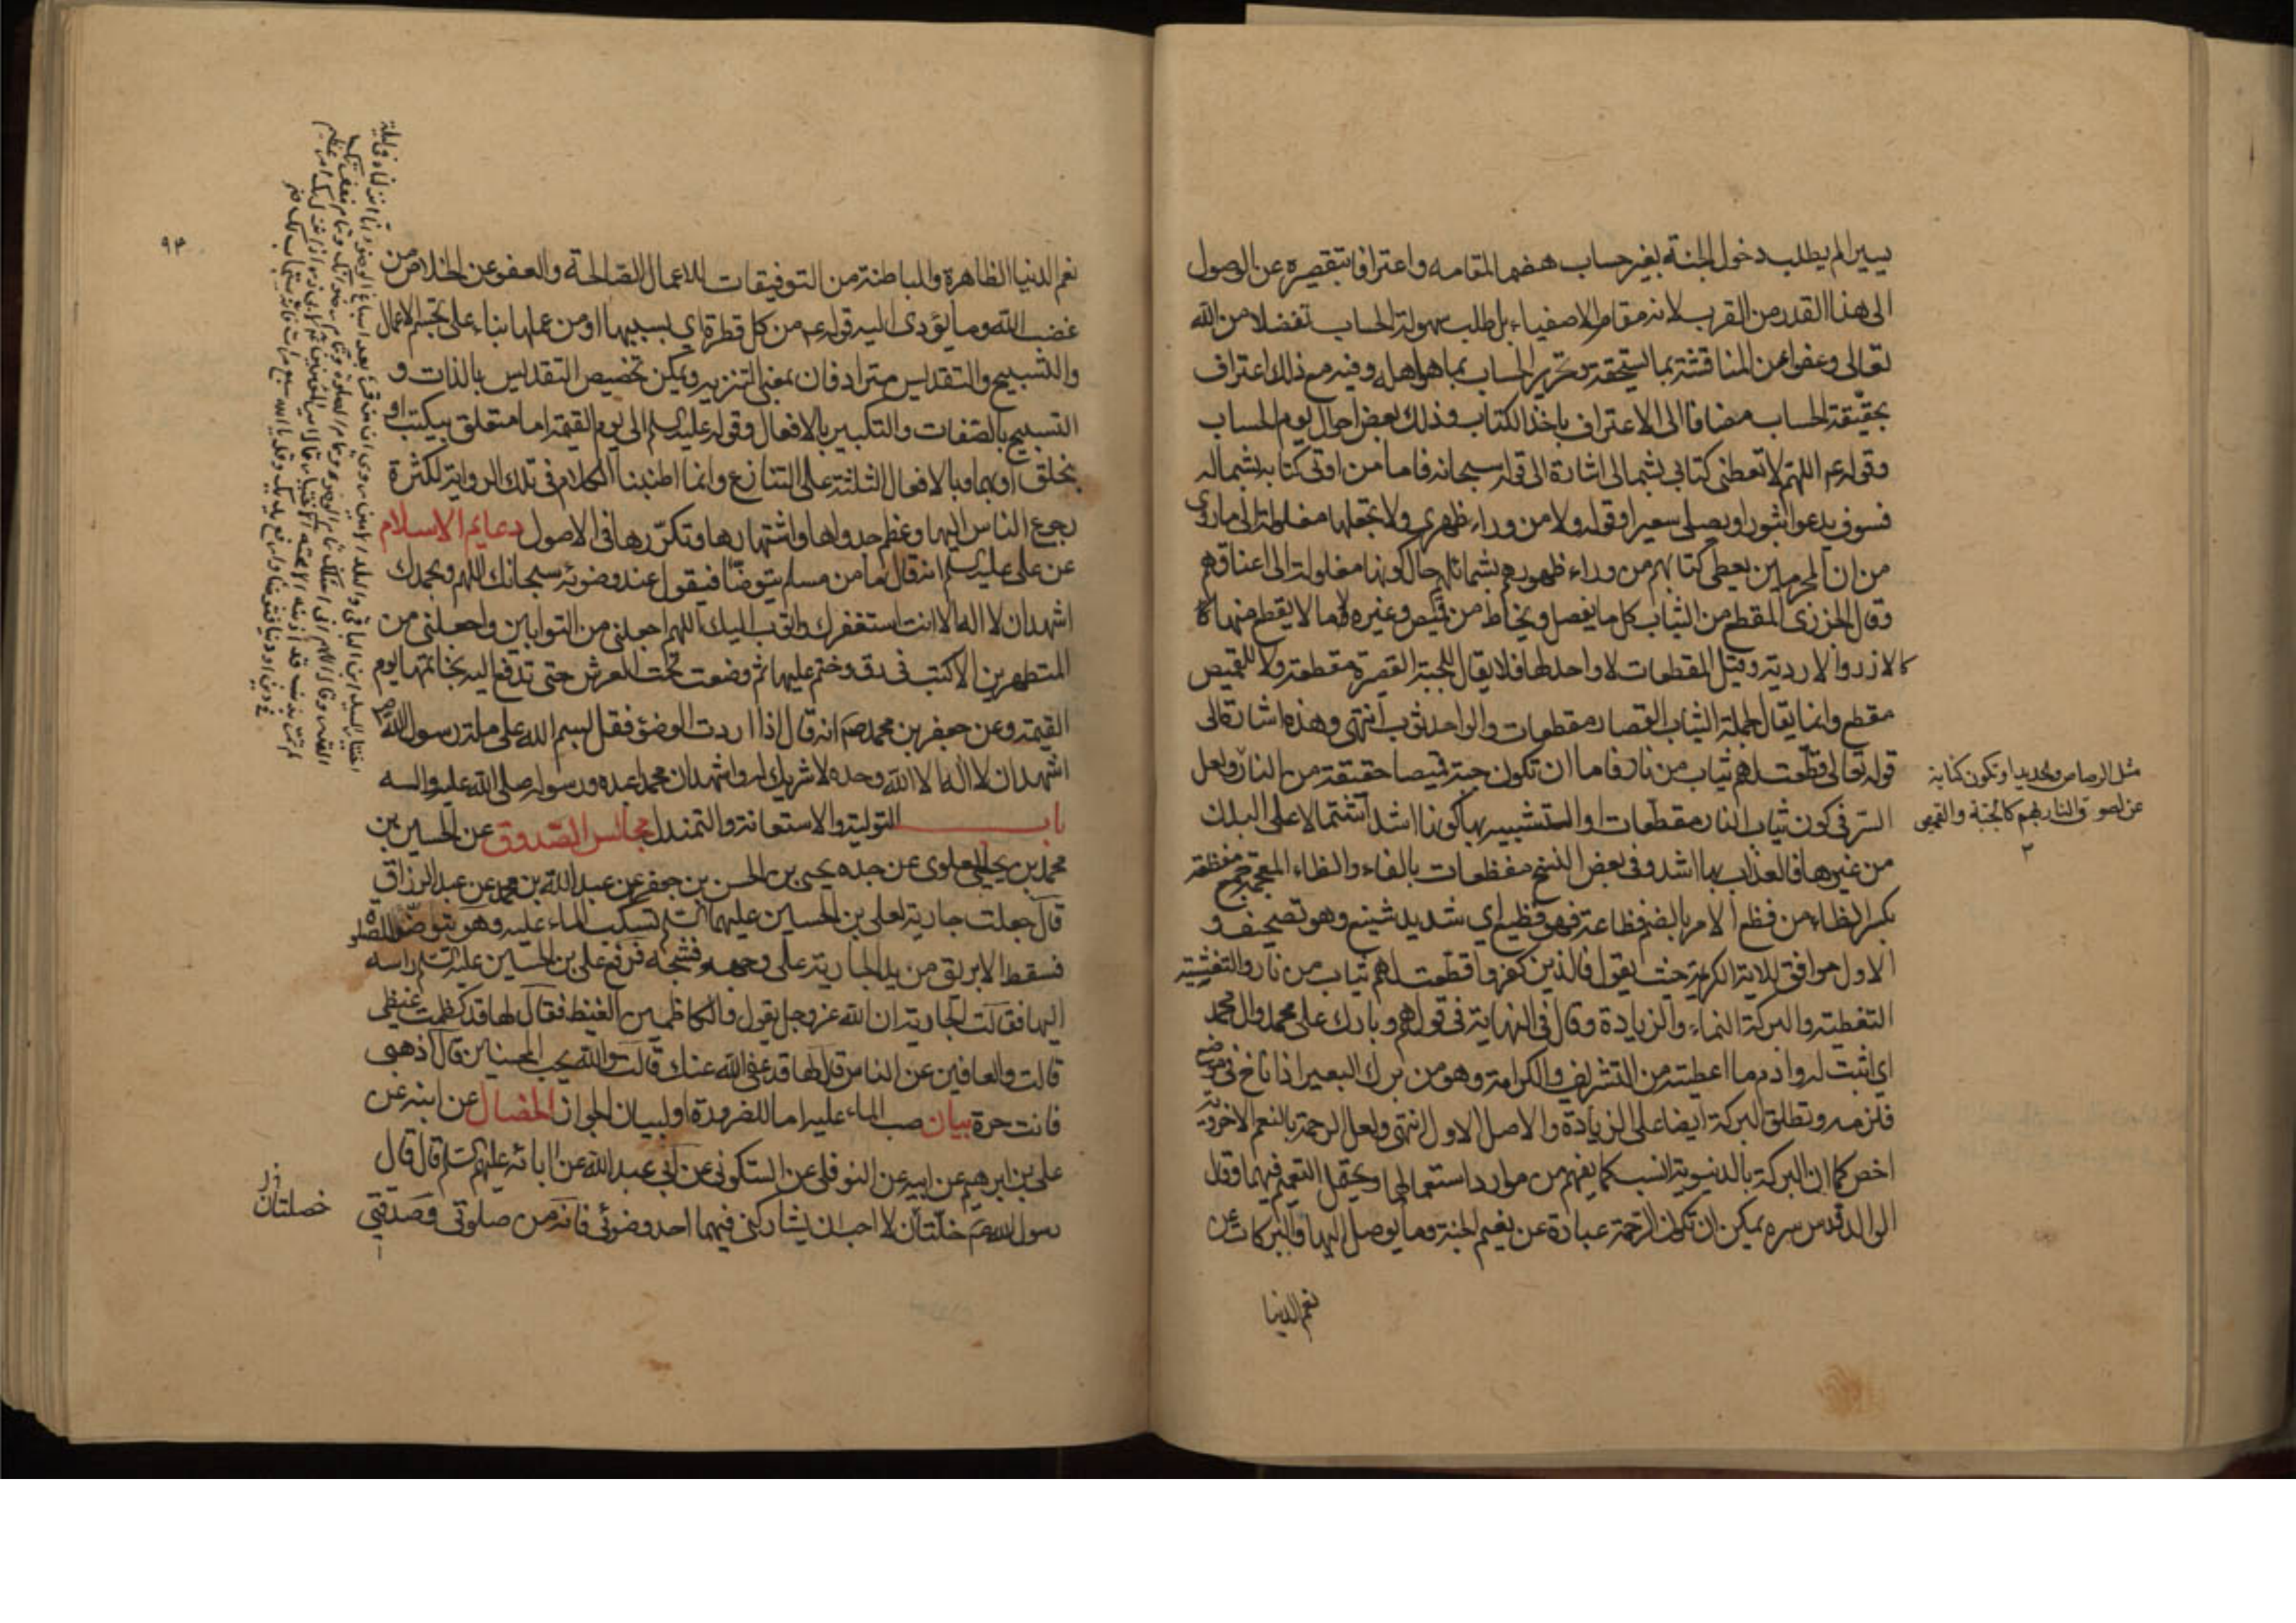 يسيرا لم يطلب دخول الجنة بغير حساب هضما لمقامه واعترافا بتقصيره عن الوصول
الى هذا القدر من القرب لانه مقام الاصفياء بل طلب سهولة الحساب تفضلا من الله
تعالى وعفوا عن المناقشة بما يستحقه وتحرير الحساب بما هو اهله وفيه مع ذلك اعتراف
بحقيقة الحساب مضافا الى الاعتراف باخذ الكتاب وذلك بعض احوال يوم الحساب
وقوله ع اللهم لا تعطني كتابي بشمالي اشارة الى قوله سبحانه فاما من اوتي كتابه بشماله
فسوف يدعوا ثبورا ويصلى سعيرا وقوله ولا من وراء ظهري ولا تجعلها مغلولة الى ما روي
من ان المجرمين يعطى كتابهم من وراء ظهورهم بشمائلهم حال كونها مغلولة الى اعناقهم
وقال الجزري المقطع من الثياب كل ما يفصل ويخاط من قميص وغيره وما لا يقطع منها كا
كالازر والاردية وقيل المقطعات لا واحد لها فلا يقال للجبة القصيرة مقطعة ولا للقميص
مقطع وانما يقال لجملة الثياب القصار مقطعات والواحد ثوب انتهى وهذه اشارة الى
قوله تعالى قطعت لهم ثياب من نار فاما ان تكون جبة وقميصا حقيقة من النار ولعل
السر في كون ثياب النار مقطعات او التشبيه بها كونها اشد اشتمالا على البدن
من غيرها فالعذاب بها اشد وفي بعض النسخ مفظعات بالفاء والظاء المعجمة جمع مفظعة
بكسر الظاء من فظع الامر بالضم فظاعة فهو فظيع اي شديد شنيع وهو تصحيف و
الاول موافق للاية الكريمة حيث يقول فالذين كفروا قطعت لهم ثياب من نار والتغشية
التغطية والبركة النماء والزيادة وقال في النهاية في قولهم وبارك على محمد وال محمد
اي اثبت له وادم ما اعطيته من التشريف والكرامة وهو من برك البعير اذا ناخ في موضع
فلزمه وتطلق البركة ايضا على الزيادة والاصل الاول انتهى ولعل الرحمة بالنعم الاخروية
اخص كما ان البركة بالدنيوية انسب كما يفهم من موارد استعمالهما ويحتمل التعميم فيهما وقال
الوالد قدس سره يمكن ان تكون الرحمة عبارة عن نعيم الجنة وما يوصل اليها والبركات عن
نعم الدنيا
مثل الرصاص والحديد او تكون كناية
عن لصوق النار بهم كالجبة والقميص
٩٤
نعم الدنيا الظاهرة والباطنة من التوفيقات للاعمال الصالحة والعفو عن الخلاص من
غضب الله وما يؤدي اليه قوله ع من كل قطرة اي بسببها او من عملها بناء على تجسم الاعمال
والتسبيح والتقديس مترادفان بمعنى التنزيه ويمكن تخصيص التقديس بالذات و
التسبيح بالصفات والتكبير بالافعال وقوله عليه السلم الى يوم القيمة اما متعلق بيكتب او
بخلق او بهما وبالافعال الثلثة على التنازع وانما اطنبنا الكلام في تلك الرواية لكثرة
رجوع الناس اليها وعظم جدواها واشتهارها وتكررها في الاصول دعايم الاسلام
عن على عليه السلم انه قال ما من مسلم يتوضا فيقول عند وضوئه سبحانك اللهم وبحمدك
اشهد ان لا اله الا انت استغفرك واتوب اليك اللهم اجعلني من التوابين واجعلني من
المتطهرين الا كتب في رق وختم عليها ثم وضعت تحت العرش حتى تدفع اليه بخاتمها يوم
القيمة وعن جعفر بن محمد ص انه قال اذا اردت الوضوء فقل بسم الله على ملة رسول الله ص
اشهد ان لا اله الا الله وحده لا شريك له واشهد ان محمدا عبده ورسوله صلى الله عليه واله
باب التولية والاستعانة والتمندل مجالس الصدوق عن الحسين بن
محمد بن يحيى العلوى عن جده يحيى بن الحسن بن جعفر عن عبد الله بن محمد عن عبد الرزاق
قال جعلت جارية لعلي بن الحسين عليهما السلم تسكب الماء عليه وهو يتوضأ للصلوة
فسقط الابريق من يد الجارية على وجهه فشجه فرفع علي بن الحسين عليه السلم راسه
اليها فقالت الجارية ان الله عز وجل يقول والكاظمين الغيظ فقال لها قد كظمت غيظي
قالت والعافين عن الناس قال لها قد عفى الله عنك قالت والله يحب المحسنين قال اذهبي
فانت حرة بيان صب الماء عليه اما للضرورة او لبيان الجواز الخصال عن ابيه عن
علي بن ابرهيم عن ابيه عن النوفلي عن السكوني عن ابي عبد الله عن ابائه عليهم السلم قال قال
رسول الله ص خلتان لا احب ان يشاركني فيهما احد وضوئي فانه من صلوتي وصدقتي
خصلتان